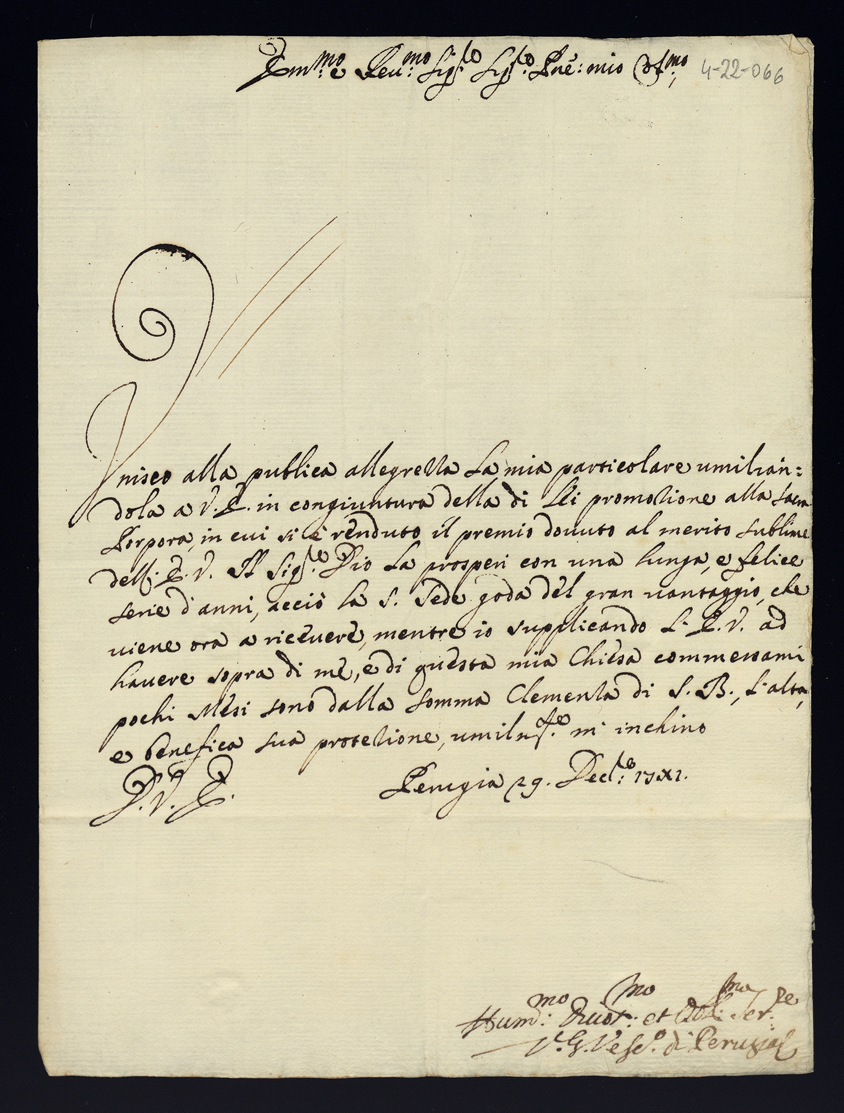 Em.mo e Reu.mo Sig.re Sig.re Pne: mio Col.mo 4-22-066
Unisco alla publica allegrezza la mia particolare umilian=
dola a V. E. in congiuntura della di Lei promozione alla sacra
Porpora, in cui si è renduto il premio douuto al merito sublime
dell'E. V. Il Sig.re Dio la prosperi con una lunga, e felice
serie d'anni, acciò la S. Sede goda del gran uantaggio, che
uiene ora a riceuere, mentre io supplicando l'E. V. ad
hauere sopra di me, e di questa mia Chiesa commessami
pochi Mesi sono dalla somma Clemenza di S. B., l'alta,
e benefica sua protezione, umilm.te m'inchino
D. V. E. Perugia 29. Dec.re
Hum.mo Diuot.mo et Obl.mo Ser.re
V. G. Vesc.o di Perugia